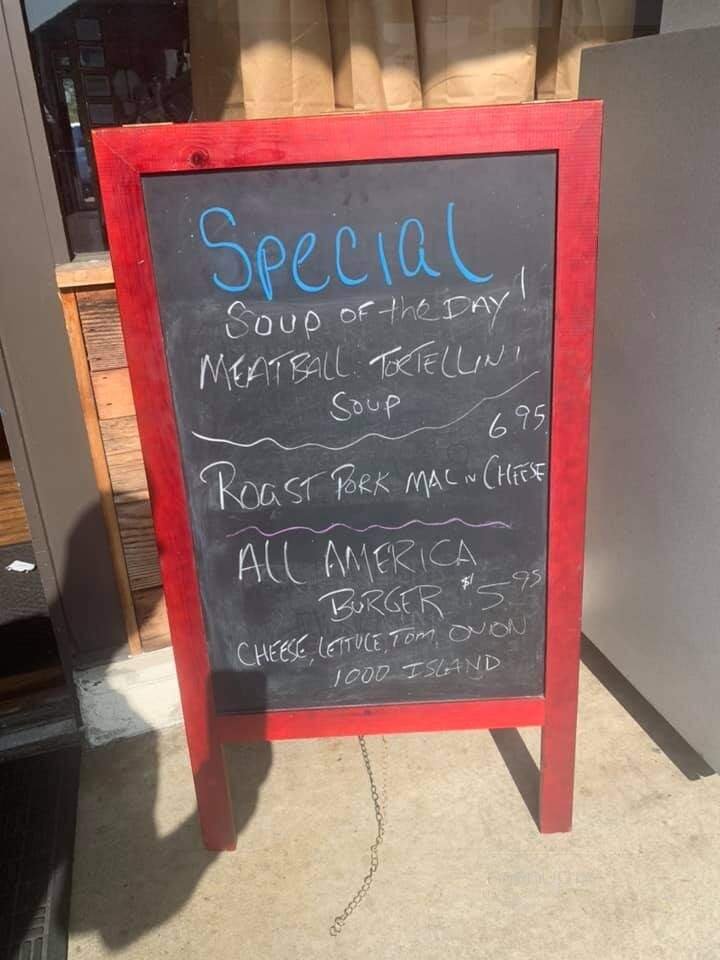 Special
Soup of the Day!
MEATBALL TORTELLINI
Soup
6.95
Roast Pork MAC N CHEESE
All AMERICA
BURGER $5.95
CHEESE, LETTUCE, TOM, ONION
1000 ISLAND